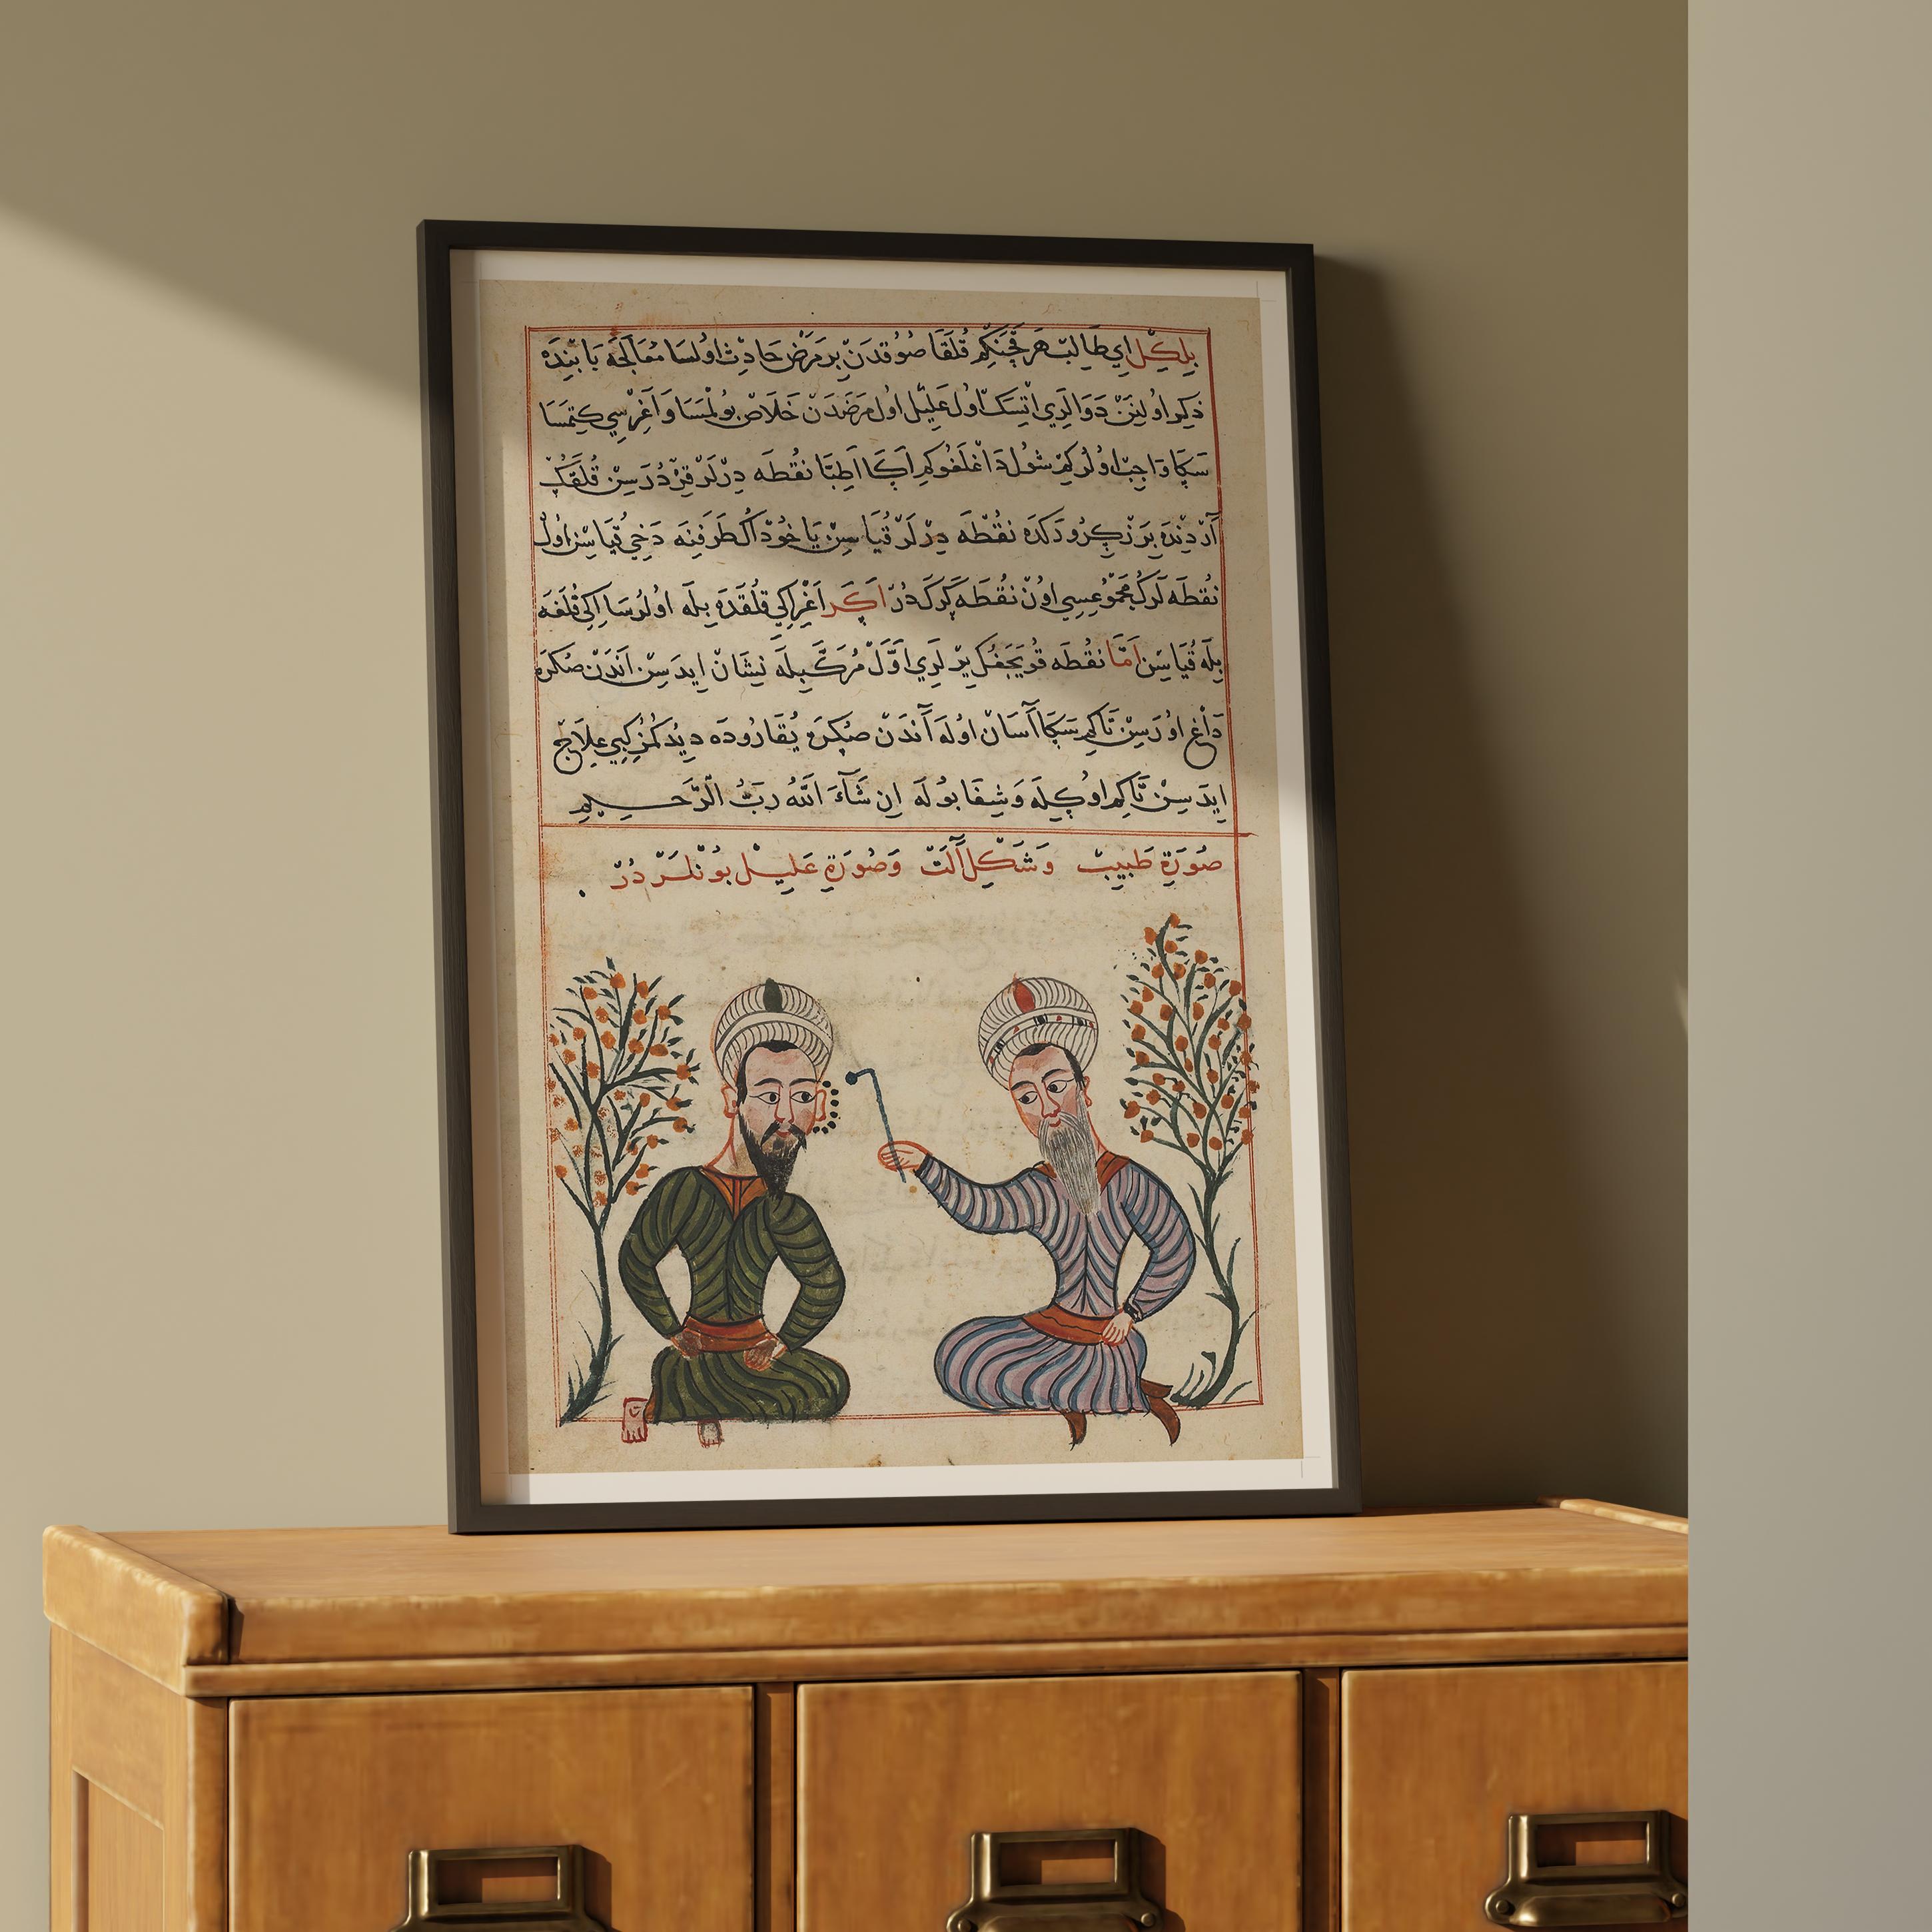 بِلْكِلْ اَيْ طَالِبْ هَرْ قَچَنْكِمْ قُلَقَا صُوُقْدَنْ بِرْ مَرَضْ حَادِثْ اوُلْسَا مُعَالَجَه بَابِنْدَه
ذِكِر اوُلِنَنْ دَوَالَرِي اَتْسَكْ اوُل عَلِيْل اوُل مَرَضْدَنْ خَلَاصْ بُولْمَسَا وَاَغْرِسِي كِتْمَسَا
سَكَا وَاجِبْ اوُلُر كِمْ شُولْ دَاغْلَغُوكِمْ اَكَا اَطِبَّا نُقْطَه دِرْلَرْ قِزْدُرَسِنْ قُلَقَكْ
دِرْلَرْ قُيَاسِنْ يَاخُودْ اُكْ طَرَفِنَه دَخِي قُيَاسِنْ اوُلْ نُقْطَه
نُقْطَه لَرُكْ مَجْمُوعِسِي اوُنْ نُقْطَه كَرَكْدُرْ اَكَرْ اَغْرِ اِكِي قُلَقْدَه بِلَه اوُلُرسَا اِكِي قُلَغَه
بِلَه قُيَاسِنْ اَمَّا نُقْطَه قُويَجَغُكْ يِرْلَرِي اَوَّلْ مُرَكَّبِيلَه نِشَانْ اِيدَسِنْ اَنْدَنْ صُكْرَه
دَاغْ اوُرَسِنْ تَاكِمْ سَكَا آسَانْ اوُلَه آنْدَنْ صُكْرَه يُقَارُودَه دِيدُكُمُزْ كِبِي عِلَاجْ
اِيدَسِنْ تَاكِمْ اوُكِلَه وَشِفَا بُولَه اِنْ شَآءَ اللّٰهُ رَبُّ الرَّحِيم
صُورَةِ طَبِيبْ وَشَكْلِ آلَتْ وَصُورَةِ عَلِيل بُونْلَرْدُرْ